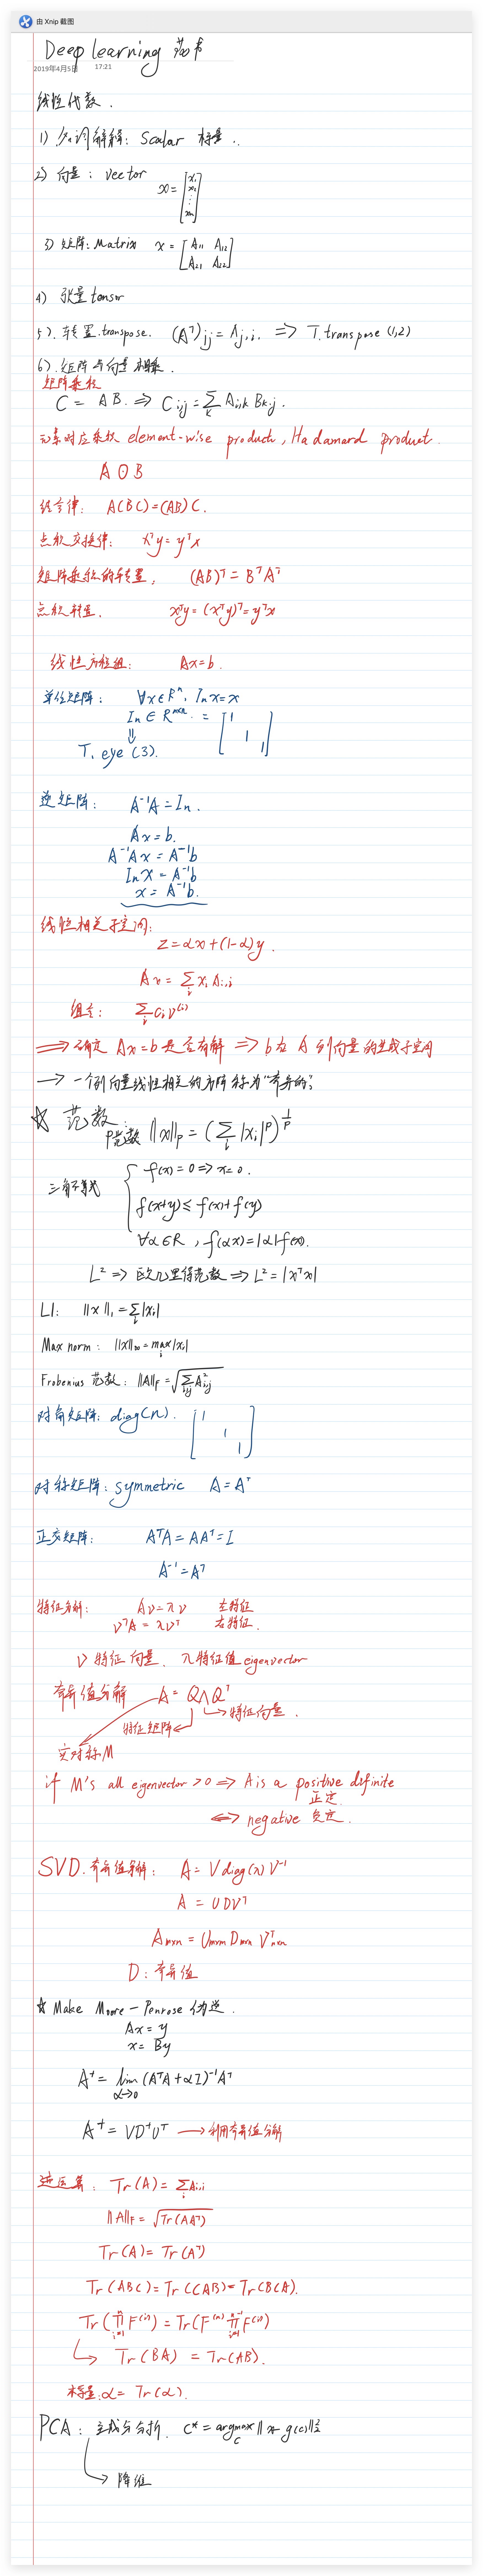 由 Xnip 截图
Deep learning 花书
2019年4月5日 17:21
线性代数.
1) 名词解释: Scalar 标量.
2) 向量: vector x = [x₁ x₂ ⋮ xₙ]
3) 矩阵: Matrix x = [A₁₁ A₁₂ A₂₁ A₂₂]
4) 张量 tensor
5). 转置.transpose. (Aᵀ)ij = Aj,i. ⇒ T.transpose (1,2)
6). 矩阵与向量相乘.
矩阵乘积
C = AB. ⇒ Ci,j = ∑k Ai,k Bk,j.
元素对应乘积 element-wise product, Hadamard product.
A ⊙ B
结合律: A(BC)=(AB)C.
点积交换律: xᵀy = yᵀx
矩阵乘积的转置, (AB)ᵀ = BᵀAᵀ
点积转置. xᵀy = (xᵀy)ᵀ = yᵀx
线性方程组: Ax=b.
单位矩阵: ∀x∈Rⁿ, Inx = x
In ∈ Rⁿˣⁿ. = [1 1 1]
⇓
T. eye (3).
逆矩阵: A⁻¹A = In.
Ax = b.
A⁻¹Ax = A⁻¹b
Inx = A⁻¹b
x = A⁻¹b.
线性相关子空间:
z = αx + (1-α)y.
Ax = ∑i xi A:,i
组合: ∑i ci v⁽ⁱ⁾
⇒ 确定 Ax=b 是否有解 ⇒ b 在 A 列向量的生成子空间
→ 一个列向量线性相关的方阵称为"奇异的"
☆ 范数:
P范数 ||x||p = (∑i |xi|ᵖ)^(1/p)
三角不等式 { f(x)=0 ⇒ x=0.
f(x+y) ≤ f(x)+f(y)
∀α∈R, f(αx) = |α| f(x).
L² ⇒ 欧几里得范数 ⇒ L² = |xᵀx|
L1: ||x||₁ = ∑i |xi|
Max norm: ||x||∞ = max i |xi|
Frobenius 范数: ||A||F = √(∑i,j A²i,j)
对角矩阵: diag(n). [1 1 1]
对称矩阵: symmetric A = Aᵀ
正交矩阵: AᵀA = AAᵀ = I
A⁻¹ = Aᵀ
特征分解: Av = λv 左特征
vᵀA = λvᵀ 右特征.
v 特征向量. λ 特征值 eigenvector
奇异值分解 A = QΛQᵀ
特征矩阵 ← ↳ 特征向量.
实对称M
if M's all eigenvector > 0 ⇒ A is a positive definite
正定.
⇔ negative 负定.
SVD. 奇异值分解: A = V diag(λ) V⁻¹
A = UDVᵀ
Amxn = Umxm Dmxn Vᵀnxn
D: 奇异值
☆ Make Moore - Penrose 伪逆.
Ax = y
x = By
A⁺ = lim α→0 (AᵀA + αI)⁻¹Aᵀ
A⁺ = VD⁺Uᵀ → 利用奇异值分解
迹运算: Tr(A) = ∑i Ai,i
||A||F = √(Tr(AAᵀ))
Tr(A) = Tr(Aᵀ)
Tr(ABC) = Tr(CAB) = Tr(BCA).
Tr(∏ⁿi=1 F⁽ⁱ⁾) = Tr(F⁽ⁿ⁾ ∏ⁿ⁻¹i=1 F⁽ⁱ⁾)
↳ Tr(BA) = Tr(AB).
标量: α = Tr(α).
PCA: 主成分分析. c* = argmax c ||x - g(c)||²₂
↳ 降维